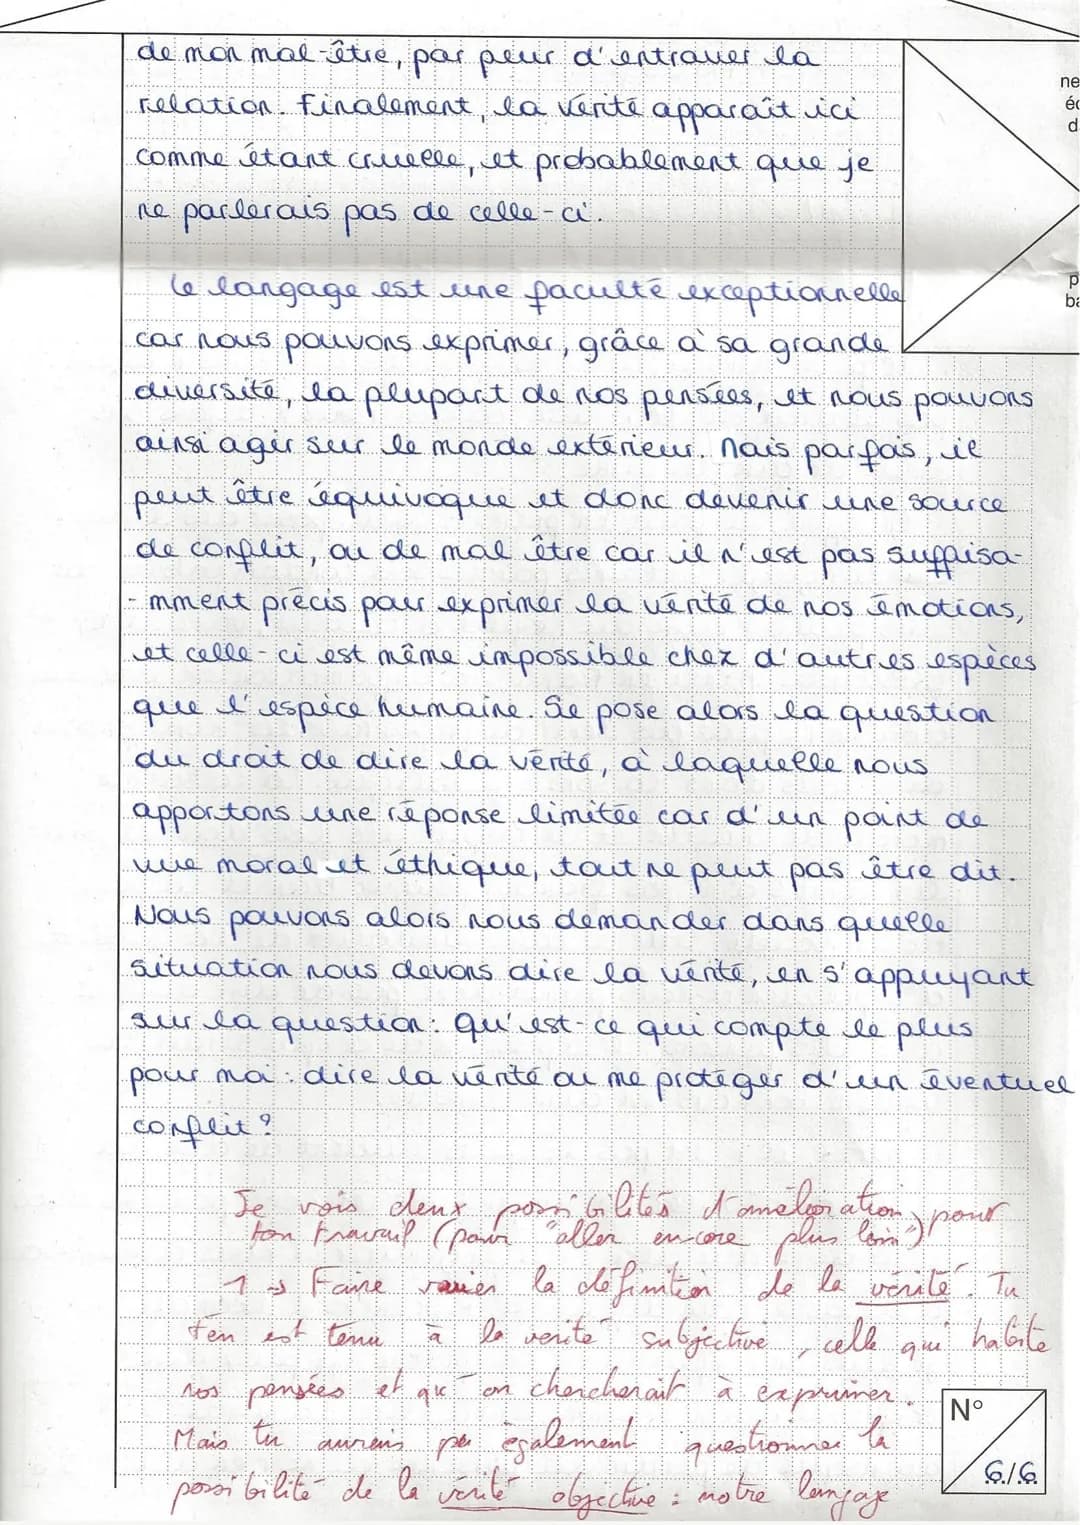 de mon mal-être, par peur d'entraver la
relation. Finalement, la vérité apparaît ici
comme étant cruelle, et probablement que je
ne parlerais pas de celle-ci.
Le langage est une faculté exceptionnelle
car nous pouvons exprimer, grâce à sa grande
diversité, la plupart de nos pensées, et nous pouvons
ainsi agir sur le monde extérieur. Mais parfois, il
peut être équivoque et donc devenir une source
de conflit, ou de mal être car il n'est pas suffisa-
-mment précis pour exprimer la vérité de nos émotions,
et celle-ci est même impossible chez d'autres espèces
que l'espèce humaine. Se pose alors la question
du droit de dire la vérité, à laquelle nous
apportons une réponse limitée car d'un point de
vue moral et éthique, tout ne peut pas être dit.
Nous pouvons alors nous demander dans quelle
situation nous devons dire la vérité, en s'appuyant
sur la question : Qu'est-ce qui compte le plus
pour moi : dire la vérité ou me protéger d'un éventuel
conflit ?
Je vois deux possibilités d'amélioration, pour
ton travail (pour "aller encore plus loin")
1 → Faire varier la définition de la vérité. Tu
t'en est tenu à la vérité subjective, celle qui habite
nos pensées et qu'on chercherait à exprimer.
Mais tu aurais pu également questionner la
possibilité de la vérité objective : notre langage
ne
éc
d
p
ba
N°
6./6.